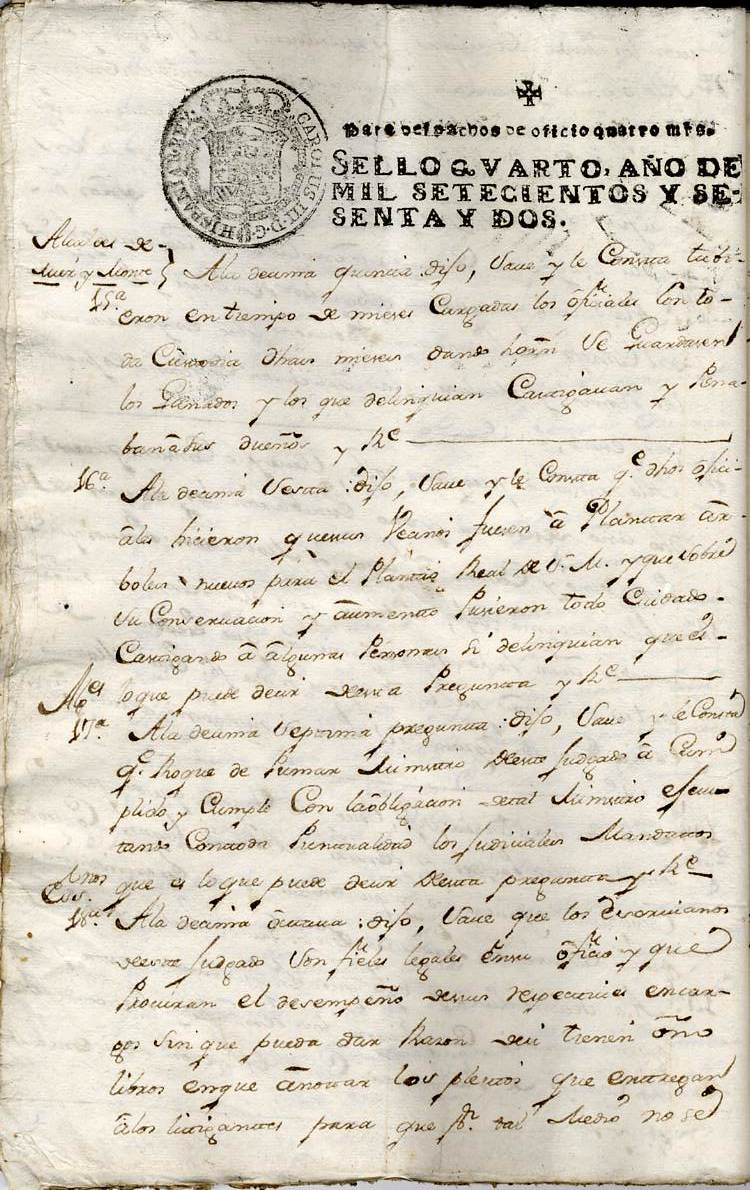 CAROLUS III D G HISPANIAR REX
Para despachos de oficio quatro mrs.
SELLO QVARTO, AÑO DE
MIL SETECIENTOS Y SE-
SENTA Y DOS.
de
y Monte
15ª
A la decima quinta dijo, Save y le Consta tubi-
eron en tiempo de mieses Cargadas los ofiziales Con to-
da Custodia dhas mieses dando horn Se Guardasen
los Ganados y los que delinquian Castigavan y Pena-
ban a sus dueños y Rc
16ª
A la decima Sesta : dijo, Save y le Consta q.e dhos ofici-
ales hicieron que sus Vecinos fuesen â Plantar âr-
boles nuevos para el Plantio Real de S. M. y que Sobre
Su Conservacion y aumento Pusieron todo Cuidado
Castigando â âlgunas Personas Si delinquian que es
lo que puede decir desta Pregunta y Rc
17ª
A la decima Septima pregunta : dijo, Save y le Consta
q.e Roque de Pumar Ministro deeste Judgado â Cum
plido y Cumple Con la obligacion de tal Ministro ejecu-
tando Con toda Puntualidad los Judiciales Mandatos
que es lo que puede decir desta pregunta y Rc
18ª
A la decima octava : dijo, Save que los Escrivanos
deeste Judgado Son fieles legales en su ôficio y que
Procuran el desempeño de sus respectivos encar-
gos Sin que pueda dar Razon de si tienen ô no
libros en que ânotar los pleitos que entregan
â los litigantes para que pr. tal Medio no se